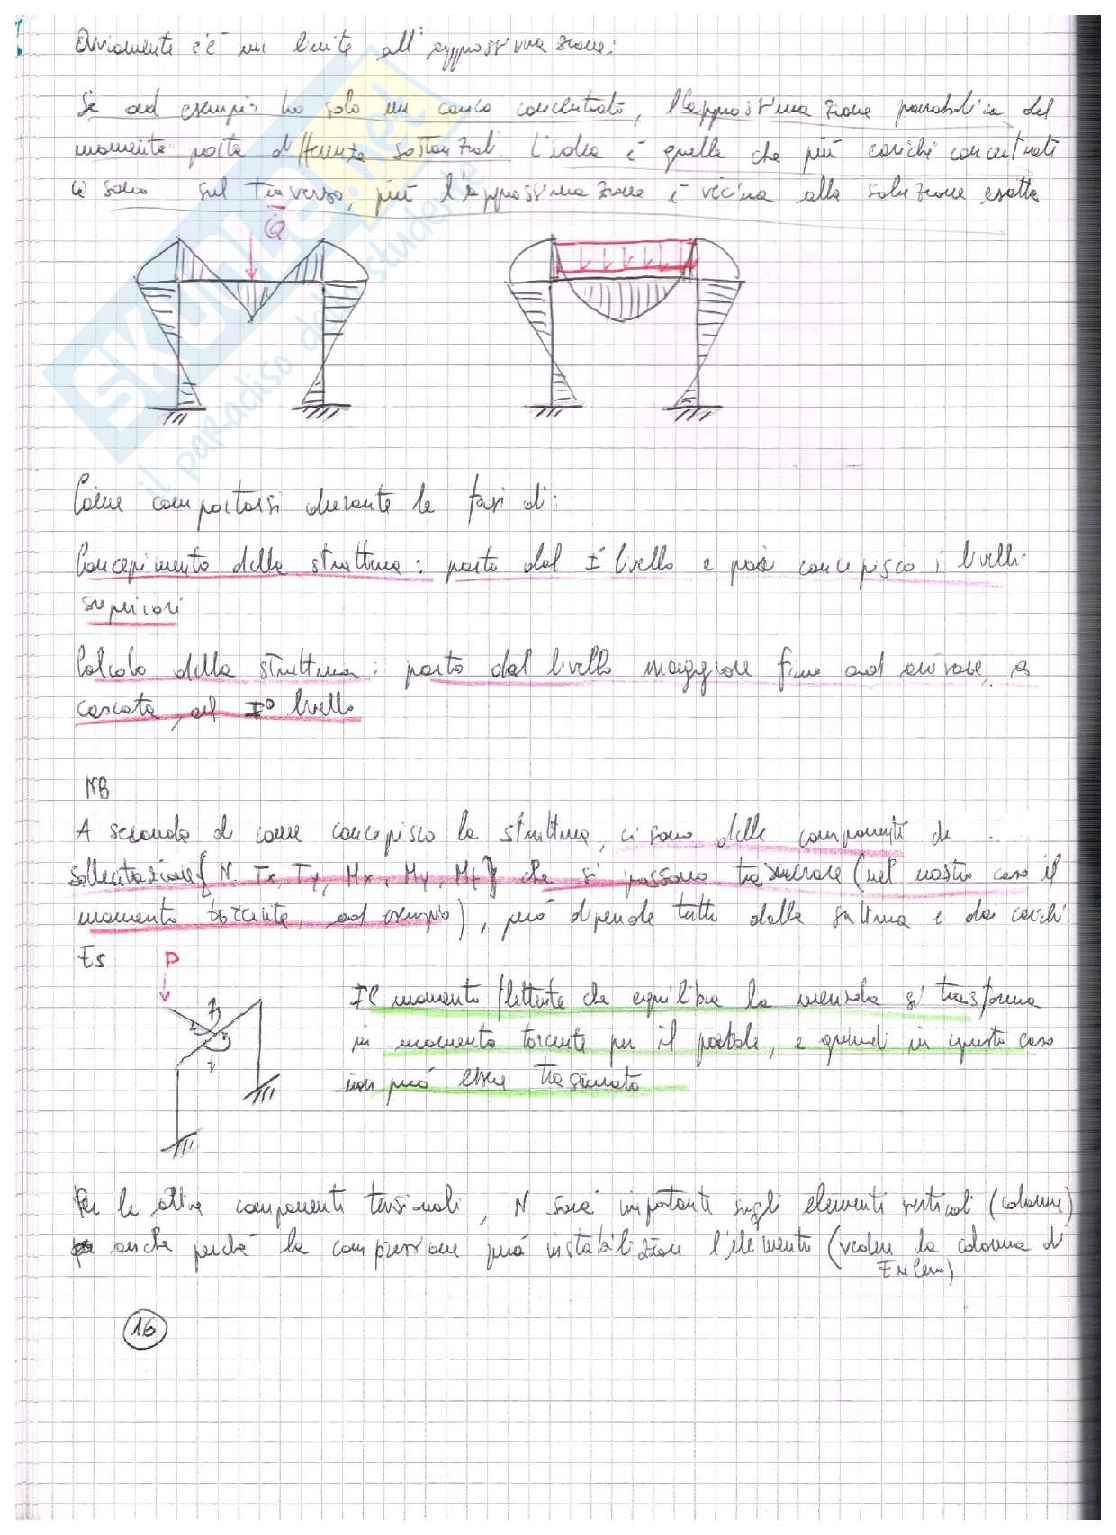 Ovviamente c'è un limite all'approssimazione:
Se ad esempio ho solo un carico concentrato, l'approssimazione parabolica del
momento porta differenze sostanziali. L'idea è quella che più carichi concentrati
ci sono sul traverso, più l'approssimazione è vicina alla soluzione esatta
Q
Come comportarsi durante le fasi di:
Concepimento della struttura: parto dal I° livello e poi concepisco i livelli
superiori
Calcolo della struttura: parto dal livello maggiore fino ad arrivare, a
cascata, al I° livello
NB
A seconda di come concepisco la struttura, ci sono delle componenti di
sollecitazione { N, Tx, Ty, Mx, My, Mt } che si possono trascurare (nel nostro caso il
momento torcente, ad esempio), però dipende tutto dalla struttura e dai carichi
Es P
Il momento flettente che equilibra la mensola si trasforma
in momento torcente per il portale, e quindi in questo caso
non può essere trascurato
Per le altre componenti tensionali, N sarà importante sugli elementi verticali (colonne)
anche perché la compressione può instabilizzare l'elemento (vedere la colonna di
Eulero)
16
SKUOLA.net
il paradiso dello studente